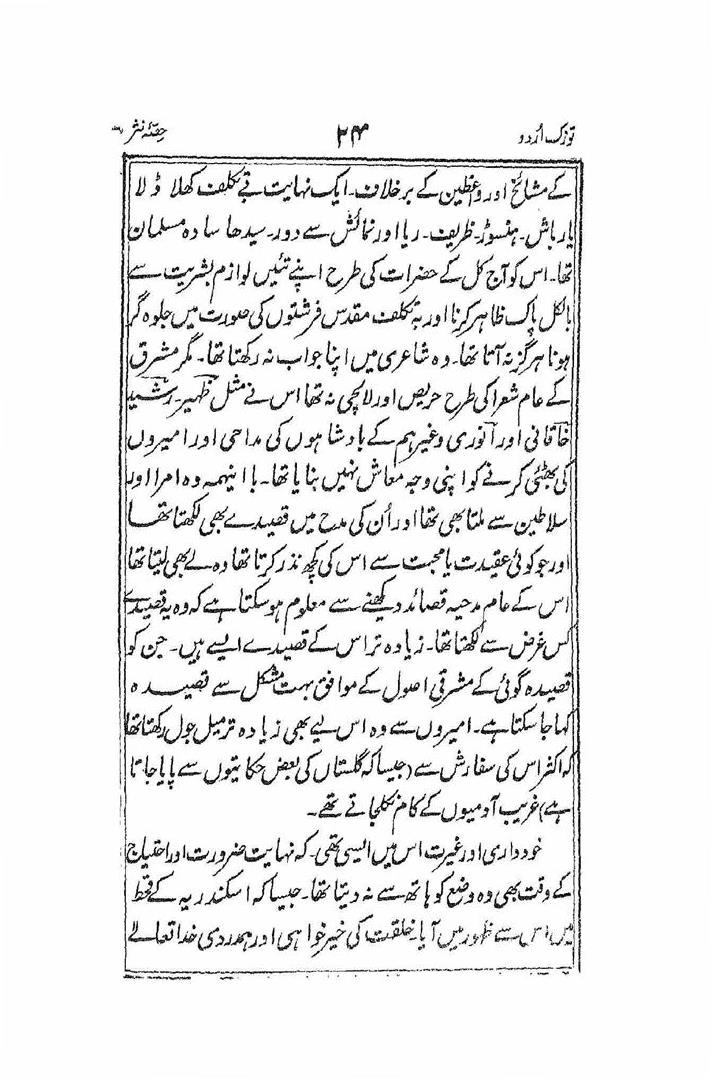 توزک اُردو ۲۴ حصّۂ نثر
کے مشائخ اور واعظین کے برخلاف۔ ایک نہایت بے تکلف کھلا ڈلا
یار باش۔ ہنسوڑ۔ ظریف۔ ریا اور نمائش سے دور۔ سیدھا سادہ مسلمان
تھا۔ اس کو آج کل کے حضرات کی طرح اپنے تئیں لوازم بشریت سے
بالکل پاک ظاہر کرنا اور بہ تکلف مقدس فرشتوں کی صورت میں جلوہ گر
ہونا ہرگز نہ آتا تھا۔ وہ شاعری میں اپنا جواب نہ رکھتا تھا۔ مگر مشرق
کے عام شعرا کی طرح حریص اور لالچی نہ تھا اس نے مثل ظہیر۔ رشید
خاقانی اور آنوری وغیرہم کے بادشاہوں کی مداحی اور امیروں
کی بھٹئی کرنے کو اپنی وجہ معاش نہیں بنایا تھا۔ با اینہمہ وہ امرا اور
سلاطین سے ملتا بھی تھا اور اُن کی مدح میں قصیدے بھی لکھتا تھا
اور جو کوئی عقیدت یا محبت سے اس کی کچھ نذر کرتا تھا وہ لے بھی لیتا تھا
اس کے عام مدحیہ قصائد دیکھنے سے معلوم ہو سکتا ہے کہ وہ یہ قصیدے
کس غرض سے لکھتا تھا۔ زیادہ تر اس کے قصیدے ایسے ہیں۔ جن کو
قصیدہ گوئی کے مشرقی اصول کے موافق بہت مشکل سے قصیدہ
کہا جا سکتا ہے۔ امیروں سے وہ اس لیے بھی زیادہ تر میل جول رکھتا تھا
کہ اکثر اس کی سفارش سے (جیسا کہ گلستاں کی بعض حکایتوں سے پایا جاتا
ہے) غریب آدمیوں کے کام نکلجاتے تھے۔
خودداری اور غیرت اس میں ایسی تھی۔ کہ نہایت ضرورت اور احتیاج
کے وقت بھی وہ وضع کو ہاتھ سے نہ دیتا تھا۔ جیسا کہ اسکندریہ کے قحط
میں اس سے ظہور میں آیا۔ خلقت کی خیر خواہی اور ہمدردی خدا تعالےٰ